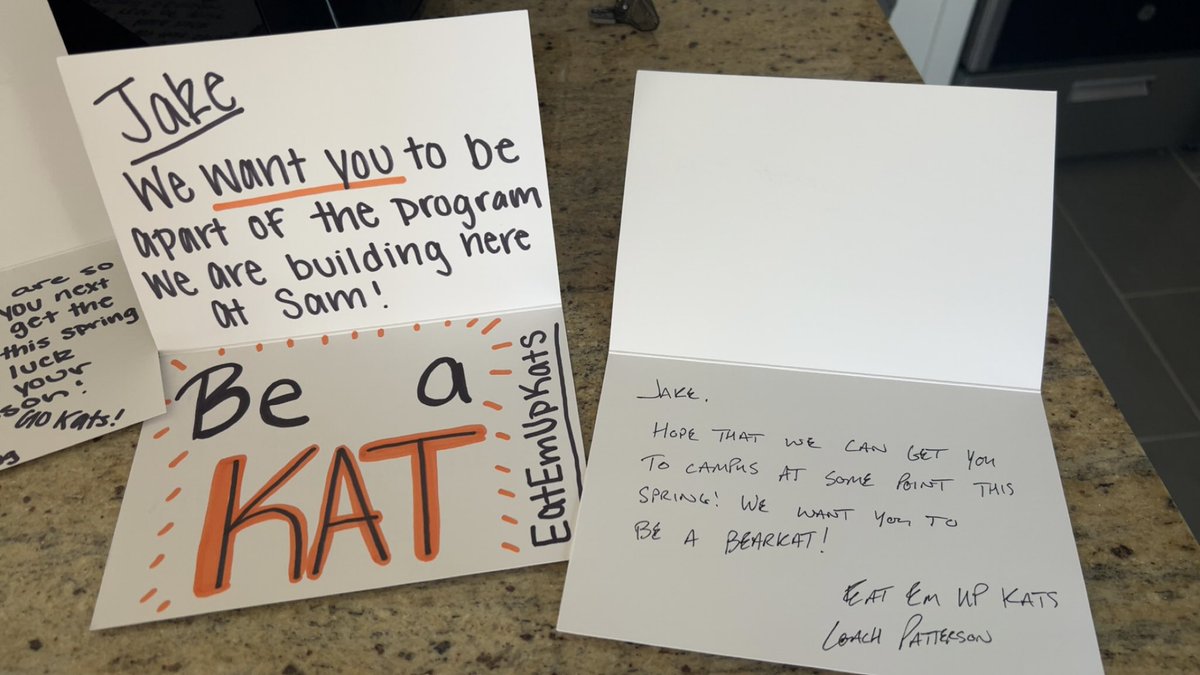 are so
you next
get the
this spring
luck
your
son!
Go Kats!
Jake
We want you to be
apart of the program
we are building here
at Sam!
Be a
KAT
EatEmUpKats
JAKE.
HOPE THAT WE CAN GET YOU
TO CAMPUS AT SOME POINT THIS
SPRING! WE WANT YOU TO
BE A BEARKAT!
EAT EM UP KATS
COACH PATTERSON